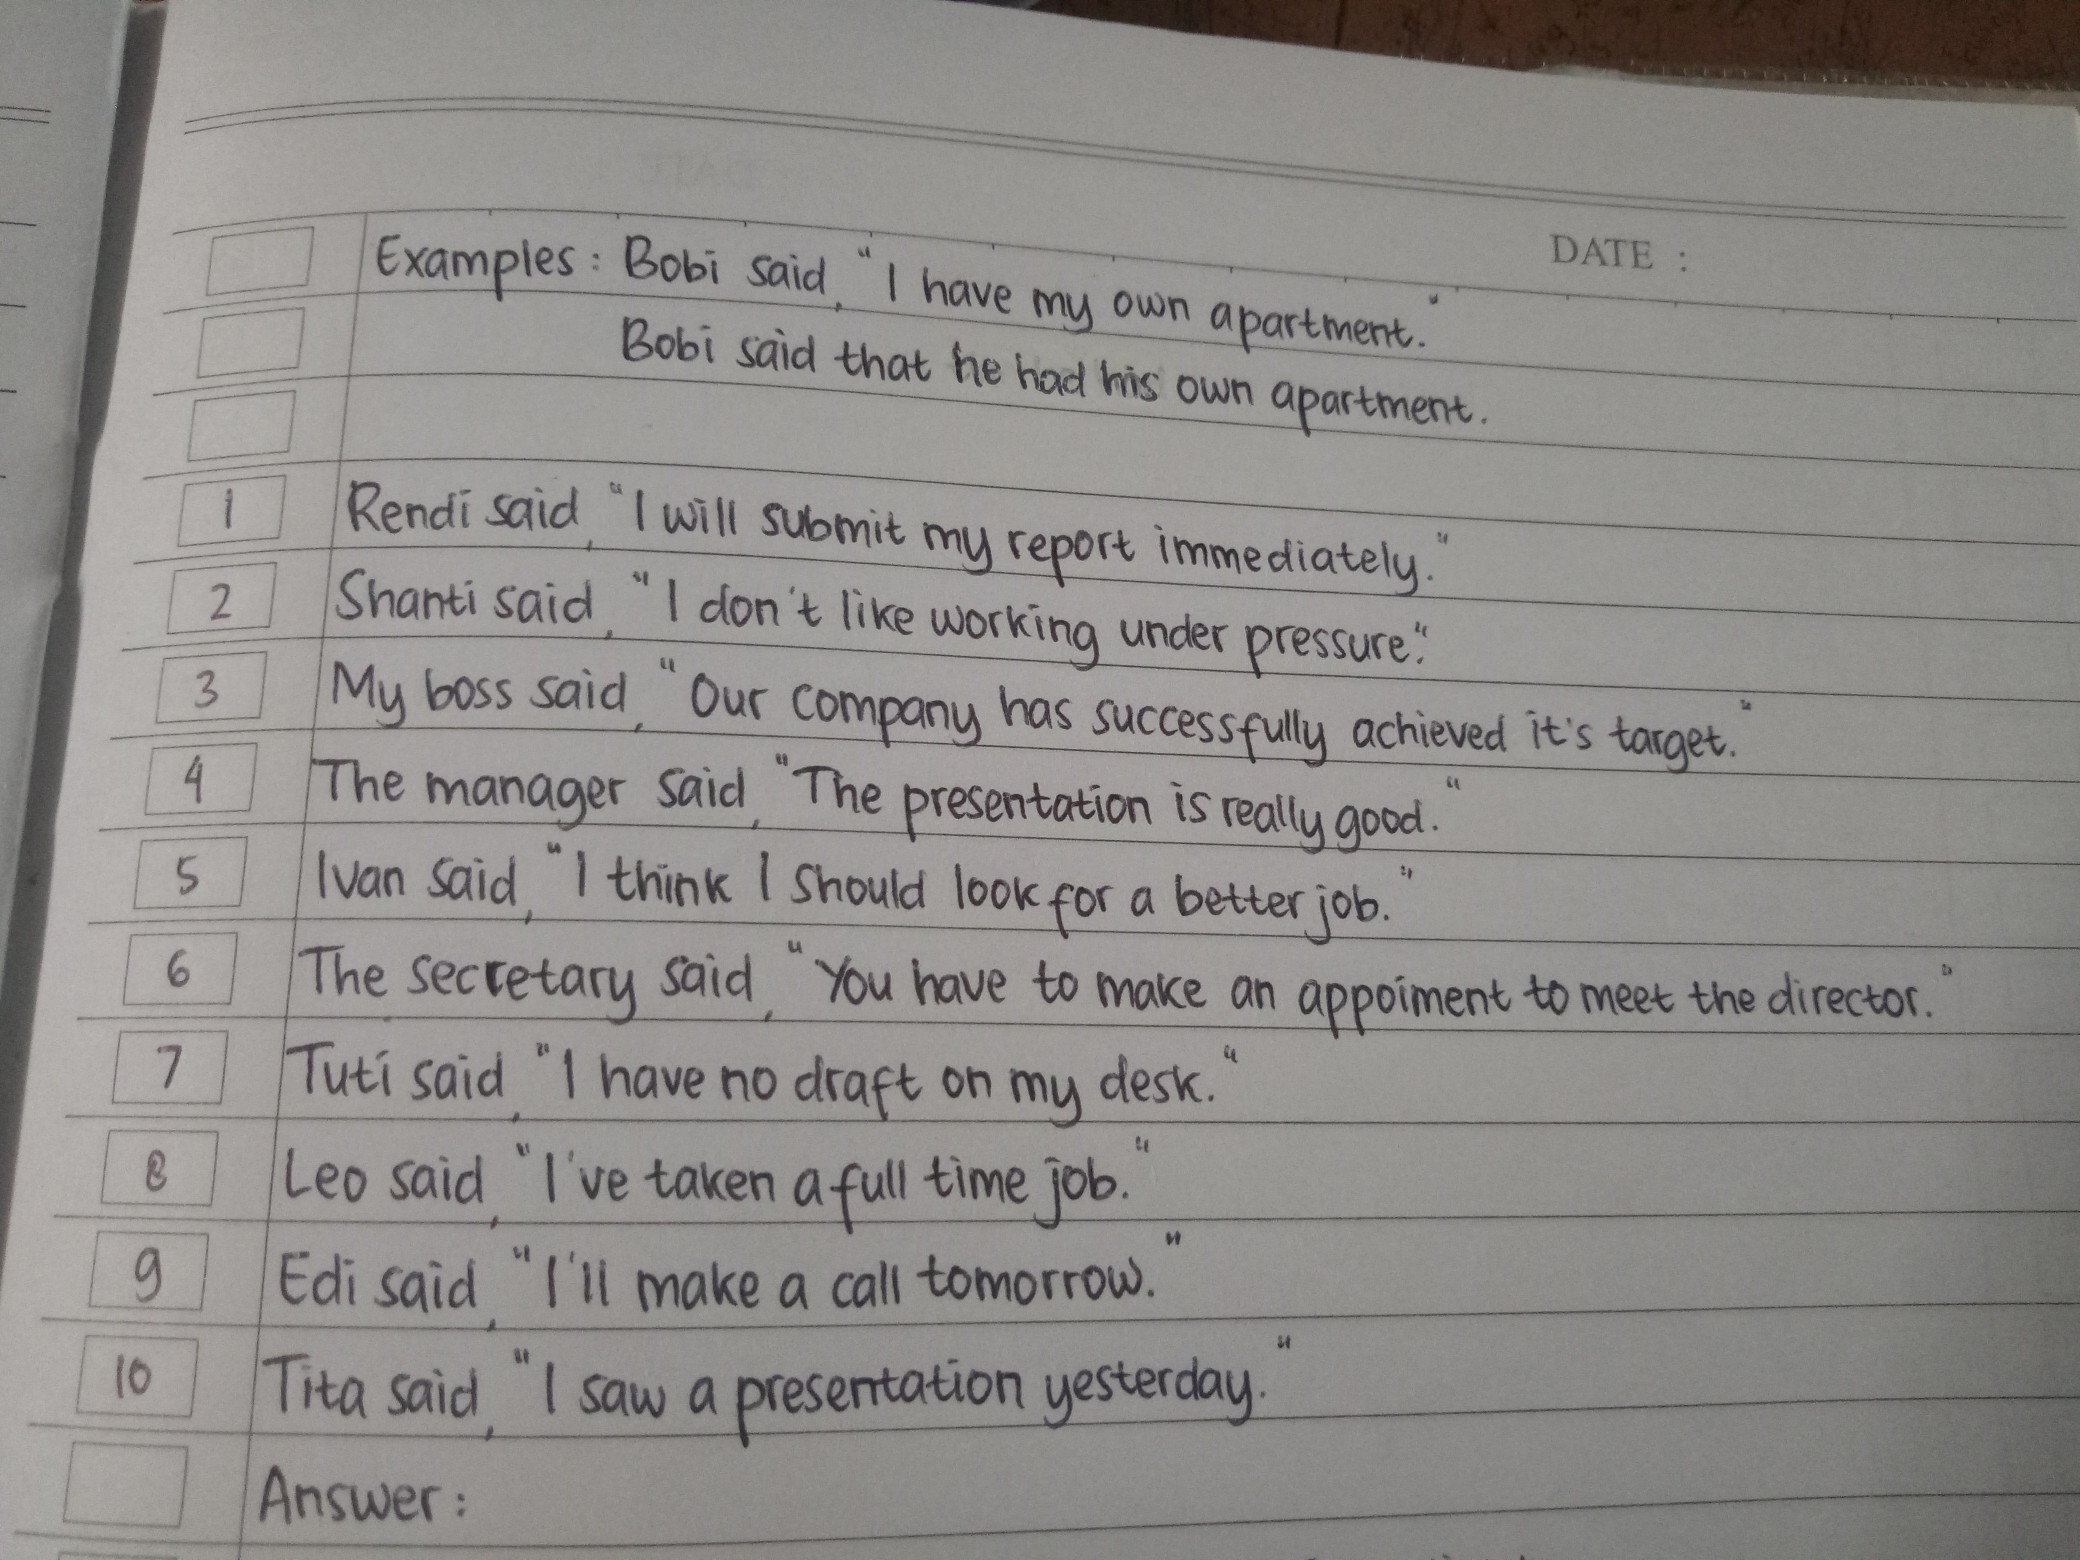 DATE :
Examples : Bobi said, "I have my own apartment."
Bobi said that he had his own apartment.
1 Rendi said, "I will submit my report immediately."
2 Shanti said, "I don't like working under pressure."
3 My boss said, "Our company has successfully achieved it's target."
4 The manager said, "The presentation is really good."
5 Ivan said, "I think I should look for a better job."
6 The secretary said, "You have to make an appoiment to meet the director."
7 Tuti said, "I have no draft on my desk."
8 Leo said, "I've taken a full time job."
9 Edi said, "I'll make a call tomorrow."
10 Tita said, "I saw a presentation yesterday."
Answer :